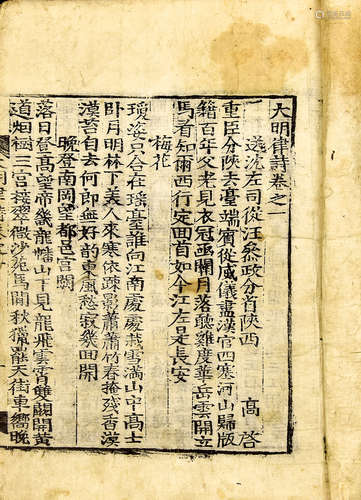 大明律詩卷之一
送沈左司從汪參政分首陝西 高啓
重臣分陝去臺端賓從威儀盡漢官四塞河山歸版
籍百年父老見衣冠函關月落聽雞度華岳雲開立
馬看知爾西行定回首如今江左是長安
梅花
瓊姿只合在瑤臺誰向江南處處栽雪滿山中高士
臥月明林下美人來寒依疎影蕭蕭竹春掩殘香漠
漠苔自去何郎無好韵東風愁寂幾回開
晚登南岡望都邑宮闕
落日登高望帝畿龍蟠山下見龍飛雲霄雙闕開黃
道烟樹三宮接翠微沙苑馬閑秋獵罷天街車響晚